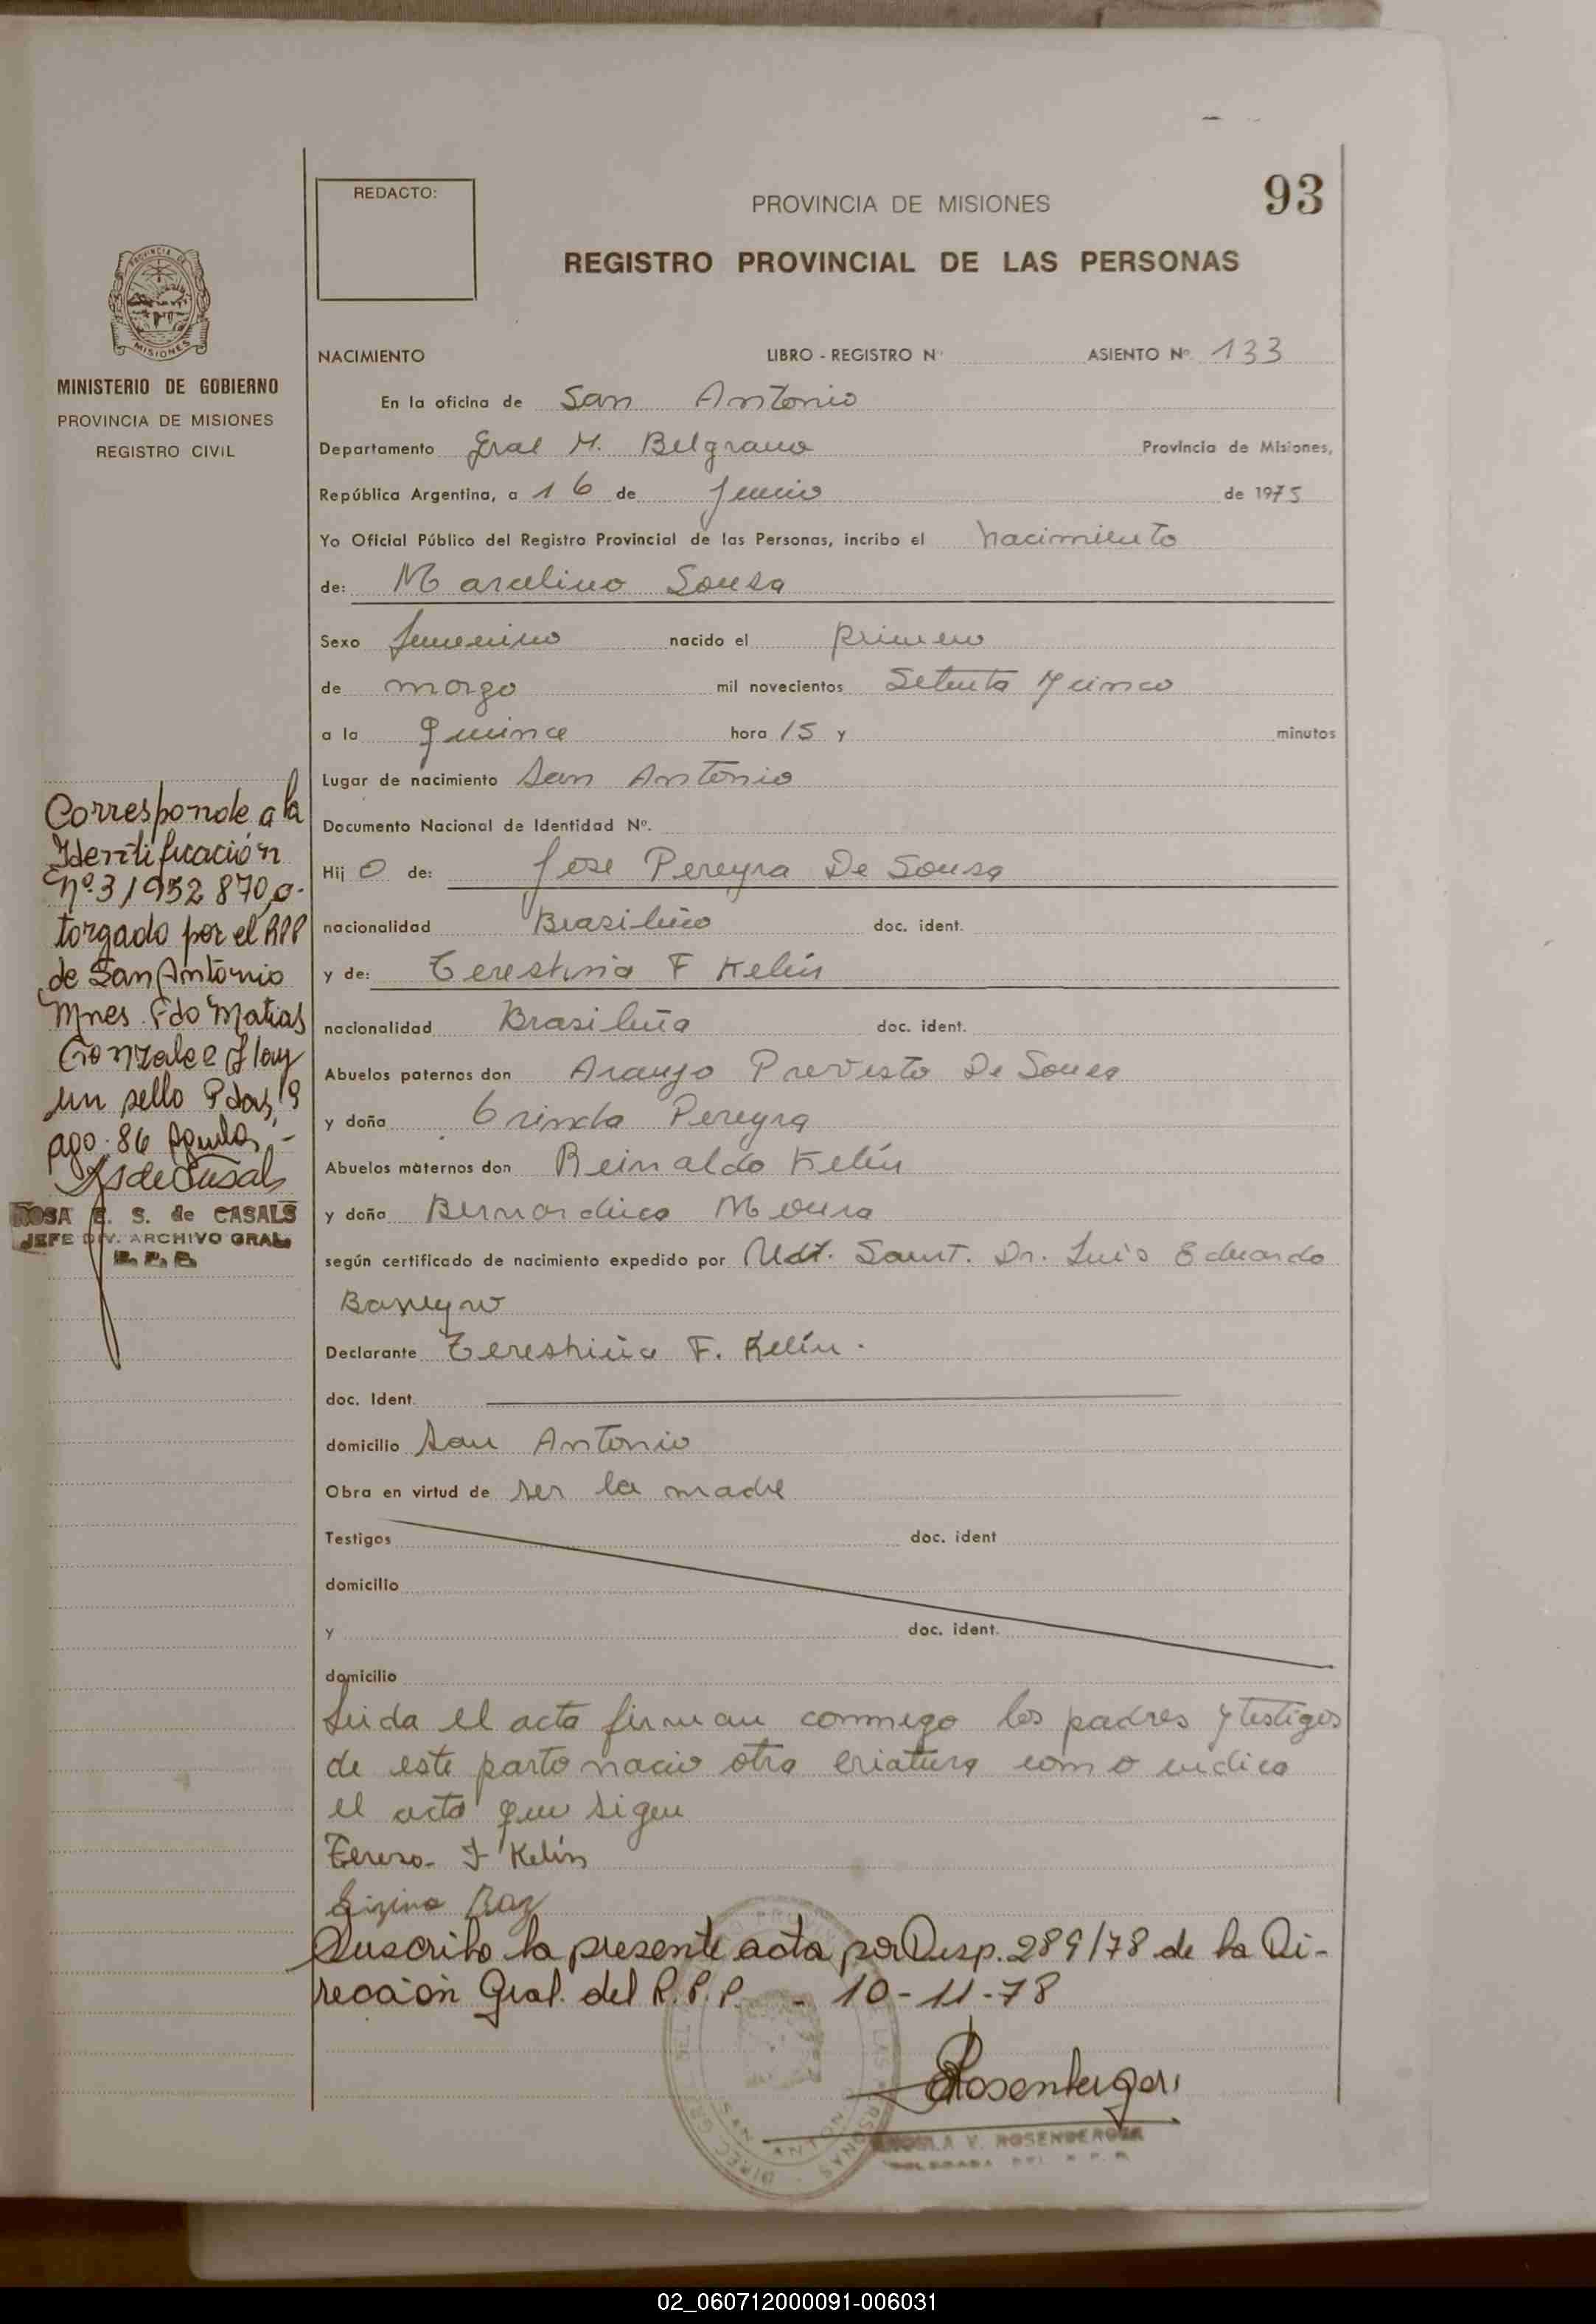 REDACTO:
PROVINCIA DE MISIONES
93
REGISTRO PROVINCIAL DE LAS PERSONAS
PROVINCIA DE
MISIONES
MINISTERIO DE GOBIERNO
PROVINCIA DE MISIONES
REGISTRO CIVIL
NACIMIENTO LIBRO - REGISTRO Nº ASIENTO Nº 133
En la oficina de San Antonio
Departamento Gral M. Belgrano Provincia de Misiones,
República Argentina, a 16 de Junio de 1975
Yo Oficial Público del Registro Provincial de las Personas, incribo el nacimiento
de: Marcelino Sousa
Sexo femenino nacido el primero
de marzo mil novecientos Setenta y cinco
a la quince hora 15 y minutos
Lugar de nacimiento San Antonio
Documento Nacional de Identidad Nº.
Hij o de: Jose Pereyra De Sousa
nacionalidad Brasileño doc. ident.
y de: Tereshina F Kelin
nacionalidad Brasileña doc. ident.
Abuelos paternos don Araujo Previsto De Sousa
y doña Pereyra
Abuelos maternos don Reinaldo Kelin
y doña Bernardina Moura
según certificado de nacimiento expedido por Sanit. Dr. Luis Eduardo
Declarante Tereshiña F. Kelin.
doc. Ident.
domicilio San Antonio
Obra en virtud de ser la madre
Testigos doc. ident
domicilio
y doc. ident.
domicilio
Leida el acta firman conmigo los padres y testigos
de este parto nacio otra criatura como indica
el acta que sigue
Teresa F Kelin
Suscribo la presente acta por Disp. 289/78 de la Di-
rección Gral. del R.P.P. - 10-11-78
Rosenberger
V. ROSENBERGER
Corresponde a la
Identificación
Nº 31952870, o-
torgado por el RPP
de San Antonio
Mnes. Fdo Matias
Gonzalez Hay
un sello Pdas, 19
ago. 86
ROSA E. S. de CASALS
JEFE DIV. ARCHIVO GRAL.
R. P. P.
02_060712000091-006031